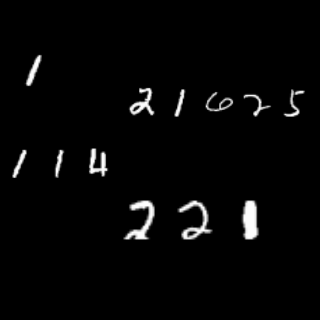 1
21625
114
221